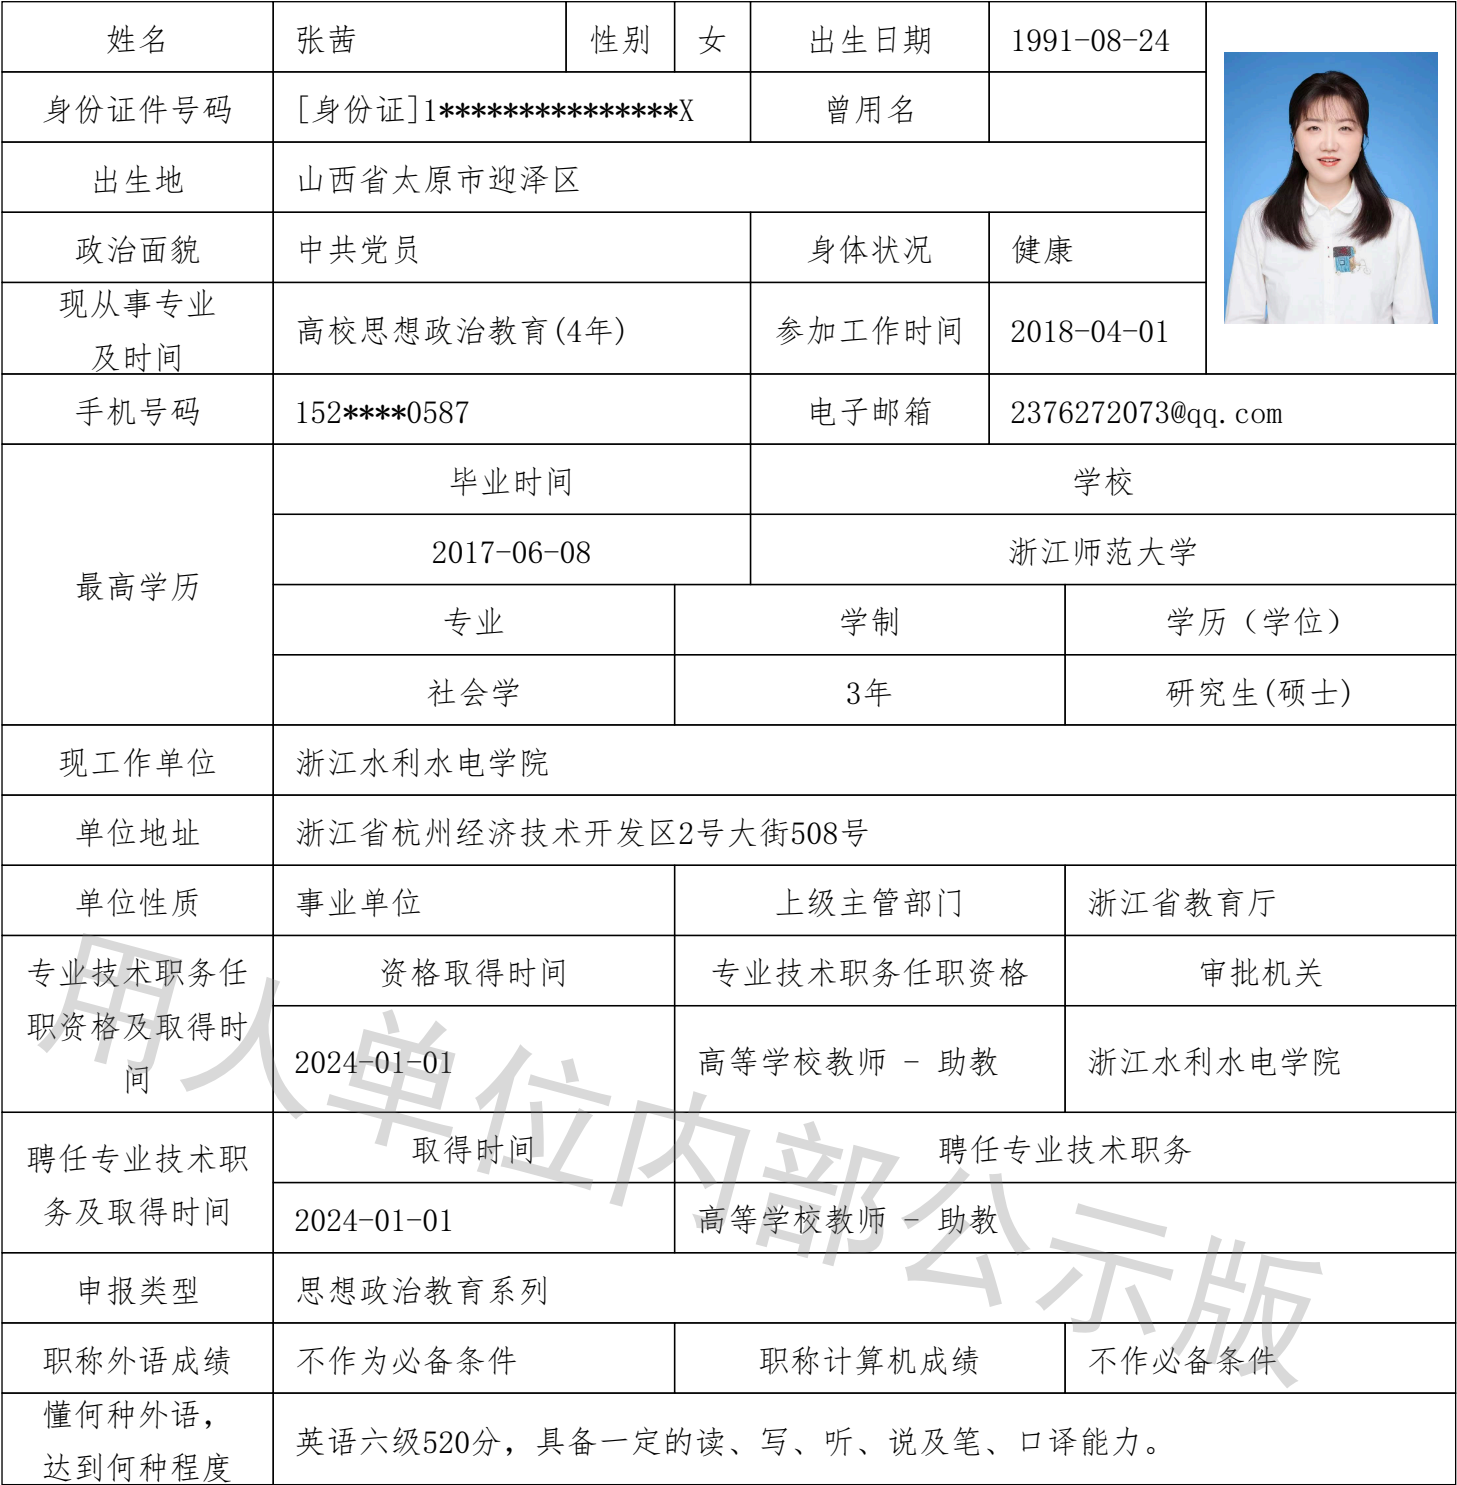 姓名 张茜 性别 女 出生日期 1991-08-24
身份证件号码 [身份证]1***************X 曾用名
出生地 山西省太原市迎泽区
政治面貌 中共党员 身体状况 健康
现从事专业
及时间 高校思想政治教育(4年) 参加工作时间 2018-04-01
手机号码 152****0587 电子邮箱 2376272073@qq.com
最高学历
毕业时间 学校
2017-06-08 浙江师范大学
专业 学制 学历（学位）
社会学 3年 研究生(硕士)
现工作单位 浙江水利水电学院
单位地址 浙江省杭州经济技术开发区2号大街508号
单位性质 事业单位 上级主管部门 浙江省教育厅
专业技术职务任
职资格及取得时
间
资格取得时间 专业技术职务任职资格 审批机关
2024-01-01 高等学校教师 - 助教 浙江水利水电学院
聘任专业技术职
务及取得时间
取得时间 聘任专业技术职务
2024-01-01 高等学校教师 - 助教
申报类型 思想政治教育系列
职称外语成绩 不作为必备条件 职称计算机成绩 不作必备条件
懂何种外语，
达到何种程度 英语六级520分，具备一定的读、写、听、说及笔、口译能力。
用人单位内部公示版